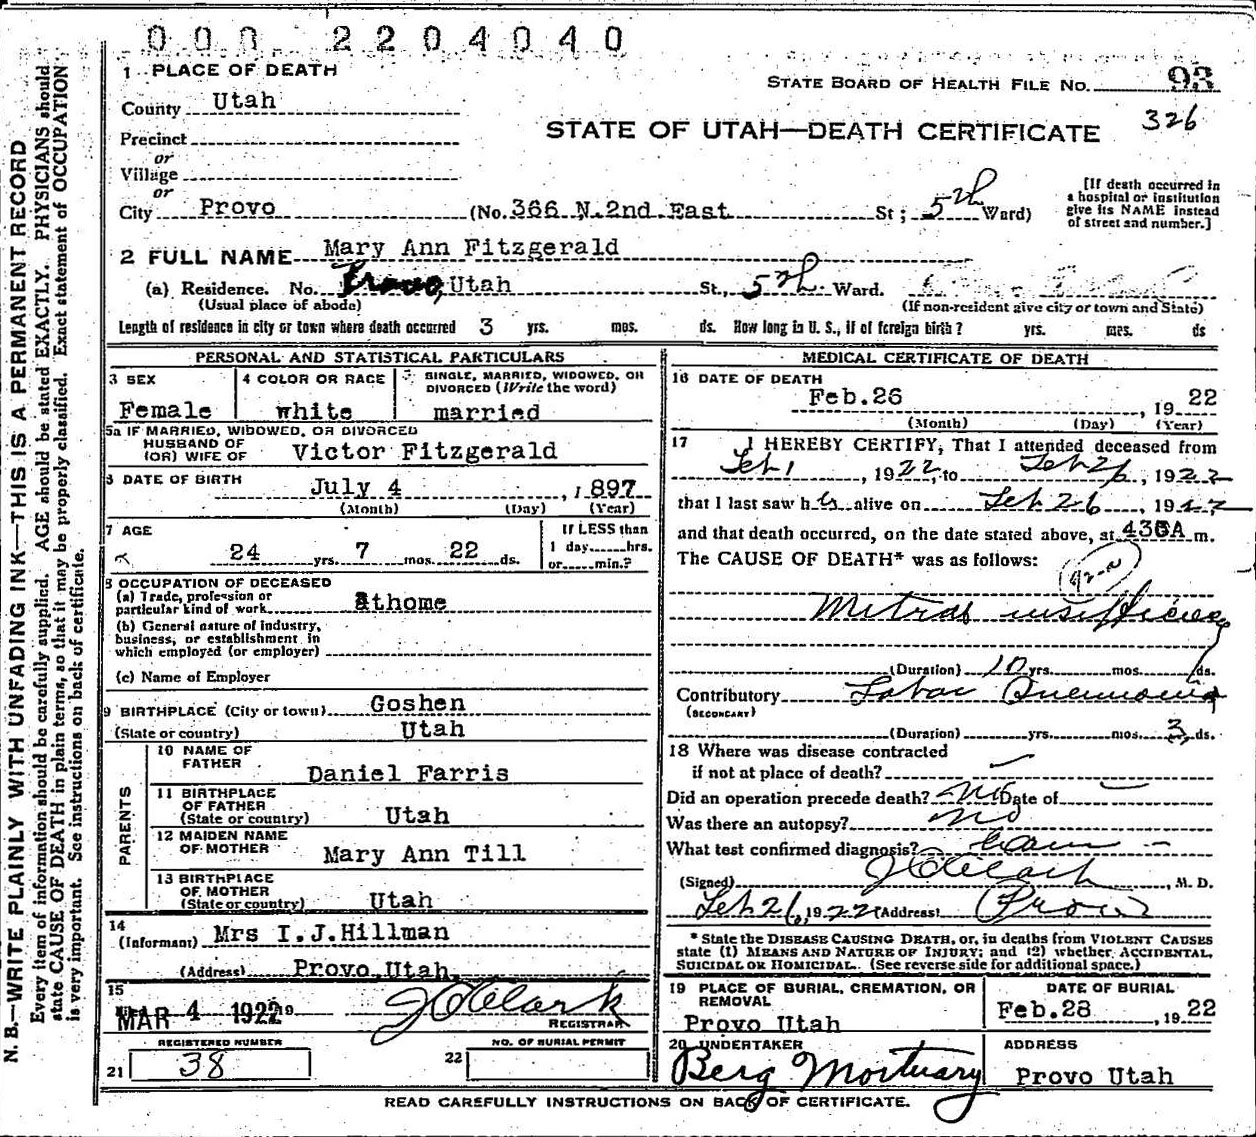 000 2204040
1 PLACE OF DEATH
STATE BOARD OF HEALTH FILE No. 93
County Utah
326
STATE OF UTAH—DEATH CERTIFICATE
Precinct
or
Village
or
City Provo (No. 366 N. 2nd East St; 5th Ward)
[If death occurred in
a hospital or institution
give its NAME instead
of street and number.]
2 FULL NAME Mary Ann Fitzgerald
(a) Residence. No. Provo, Utah St., 5th Ward.
(Usual place of abode)
(If non-resident give city or town and State)
Length of residence in city or town where death occurred 3 yrs. mos. ds. How long in U. S., if of foreign birth? yrs. mos. ds
PERSONAL AND STATISTICAL PARTICULARS
3 SEX
Female
4 COLOR OR RACE
white
5 SINGLE, MARRIED, WIDOWED, OR
DIVORCED (Write the word)
married
5a IF MARRIED, WIDOWED, OR DIVORCED
HUSBAND OF
(OR) WIFE OF Victor Fitzgerald
6 DATE OF BIRTH
July 4, 1897
(Month) (Day) (Year)
7 AGE
24 yrs. 7 mos. 22 ds.
If LESS than
1 day......hrs.
or......min.?
8 OCCUPATION OF DECEASED
(a) Trade, profession or
particular kind of work athome
(b) General nature of industry,
business, or establishment in
which employed (or employer)
(c) Name of Employer
9 BIRTHPLACE (City or town) Goshen
(State or country) Utah
PARENTS
10 NAME OF
FATHER
Daniel Farris
11 BIRTHPLACE
OF FATHER
(State or country) Utah
12 MAIDEN NAME
OF MOTHER Mary Ann Till
13 BIRTHPLACE
OF MOTHER
(State or country) Utah
14
(Informant) Mrs I.J.Hillman
(Address) Provo Utah.
15
MAR 4 1922 19
J C Clark
REGISTRAR
REGISTERED NUMBER
21 38
NO. OF BURIAL PERMIT
22
MEDICAL CERTIFICATE OF DEATH
16 DATE OF DEATH
Feb.26, 1922
(Month) (Day) (Year)
17 I HEREBY CERTIFY, That I attended deceased from
Feb 1, 1922, to Feb 26, 1922
that I last saw her alive on Feb 26, 1922
and that death occurred, on the date stated above, at 430A m.
The CAUSE OF DEATH* was as follows:
Mitral insufficiency
(Duration) 10 yrs. mos. ds.
Contributory Lobar Pneumonia
(SECONDARY)
(Duration) yrs. mos. 3 ds.
18 Where was disease contracted
if not at place of death? —
Did an operation precede death? No Date of —
Was there an autopsy? No
What test confirmed diagnosis?
(Signed) J C Clark, M. D.
Feb 26, 1922 (Address) Provo
* State the DISEASE CAUSING DEATH, or, in deaths from VIOLENT CAUSES
state (1) MEANS AND NATURE OF INJURY; and (2) whether ACCIDENTAL,
SUICIDAL OR HOMICIDAL. (See reverse side for additional space.)
19 PLACE OF BURIAL, CREMATION, OR
REMOVAL
Provo Utah
DATE OF BURIAL
Feb.28, 1922
20 UNDERTAKER
Berg Mortuary
ADDRESS
Provo Utah
READ CAREFULLY INSTRUCTIONS ON BACK OF CERTIFICATE.
N. B.—WRITE PLAINLY WITH UNFADING INK—THIS IS A PERMANENT RECORD
Every item of information should be carefully supplied. AGE should be stated EXACTLY. PHYSICIANS should
state CAUSE OF DEATH in plain terms, so that it may be properly classified. Exact statement of OCCUPATION
is very important. See instructions on back of certificate.